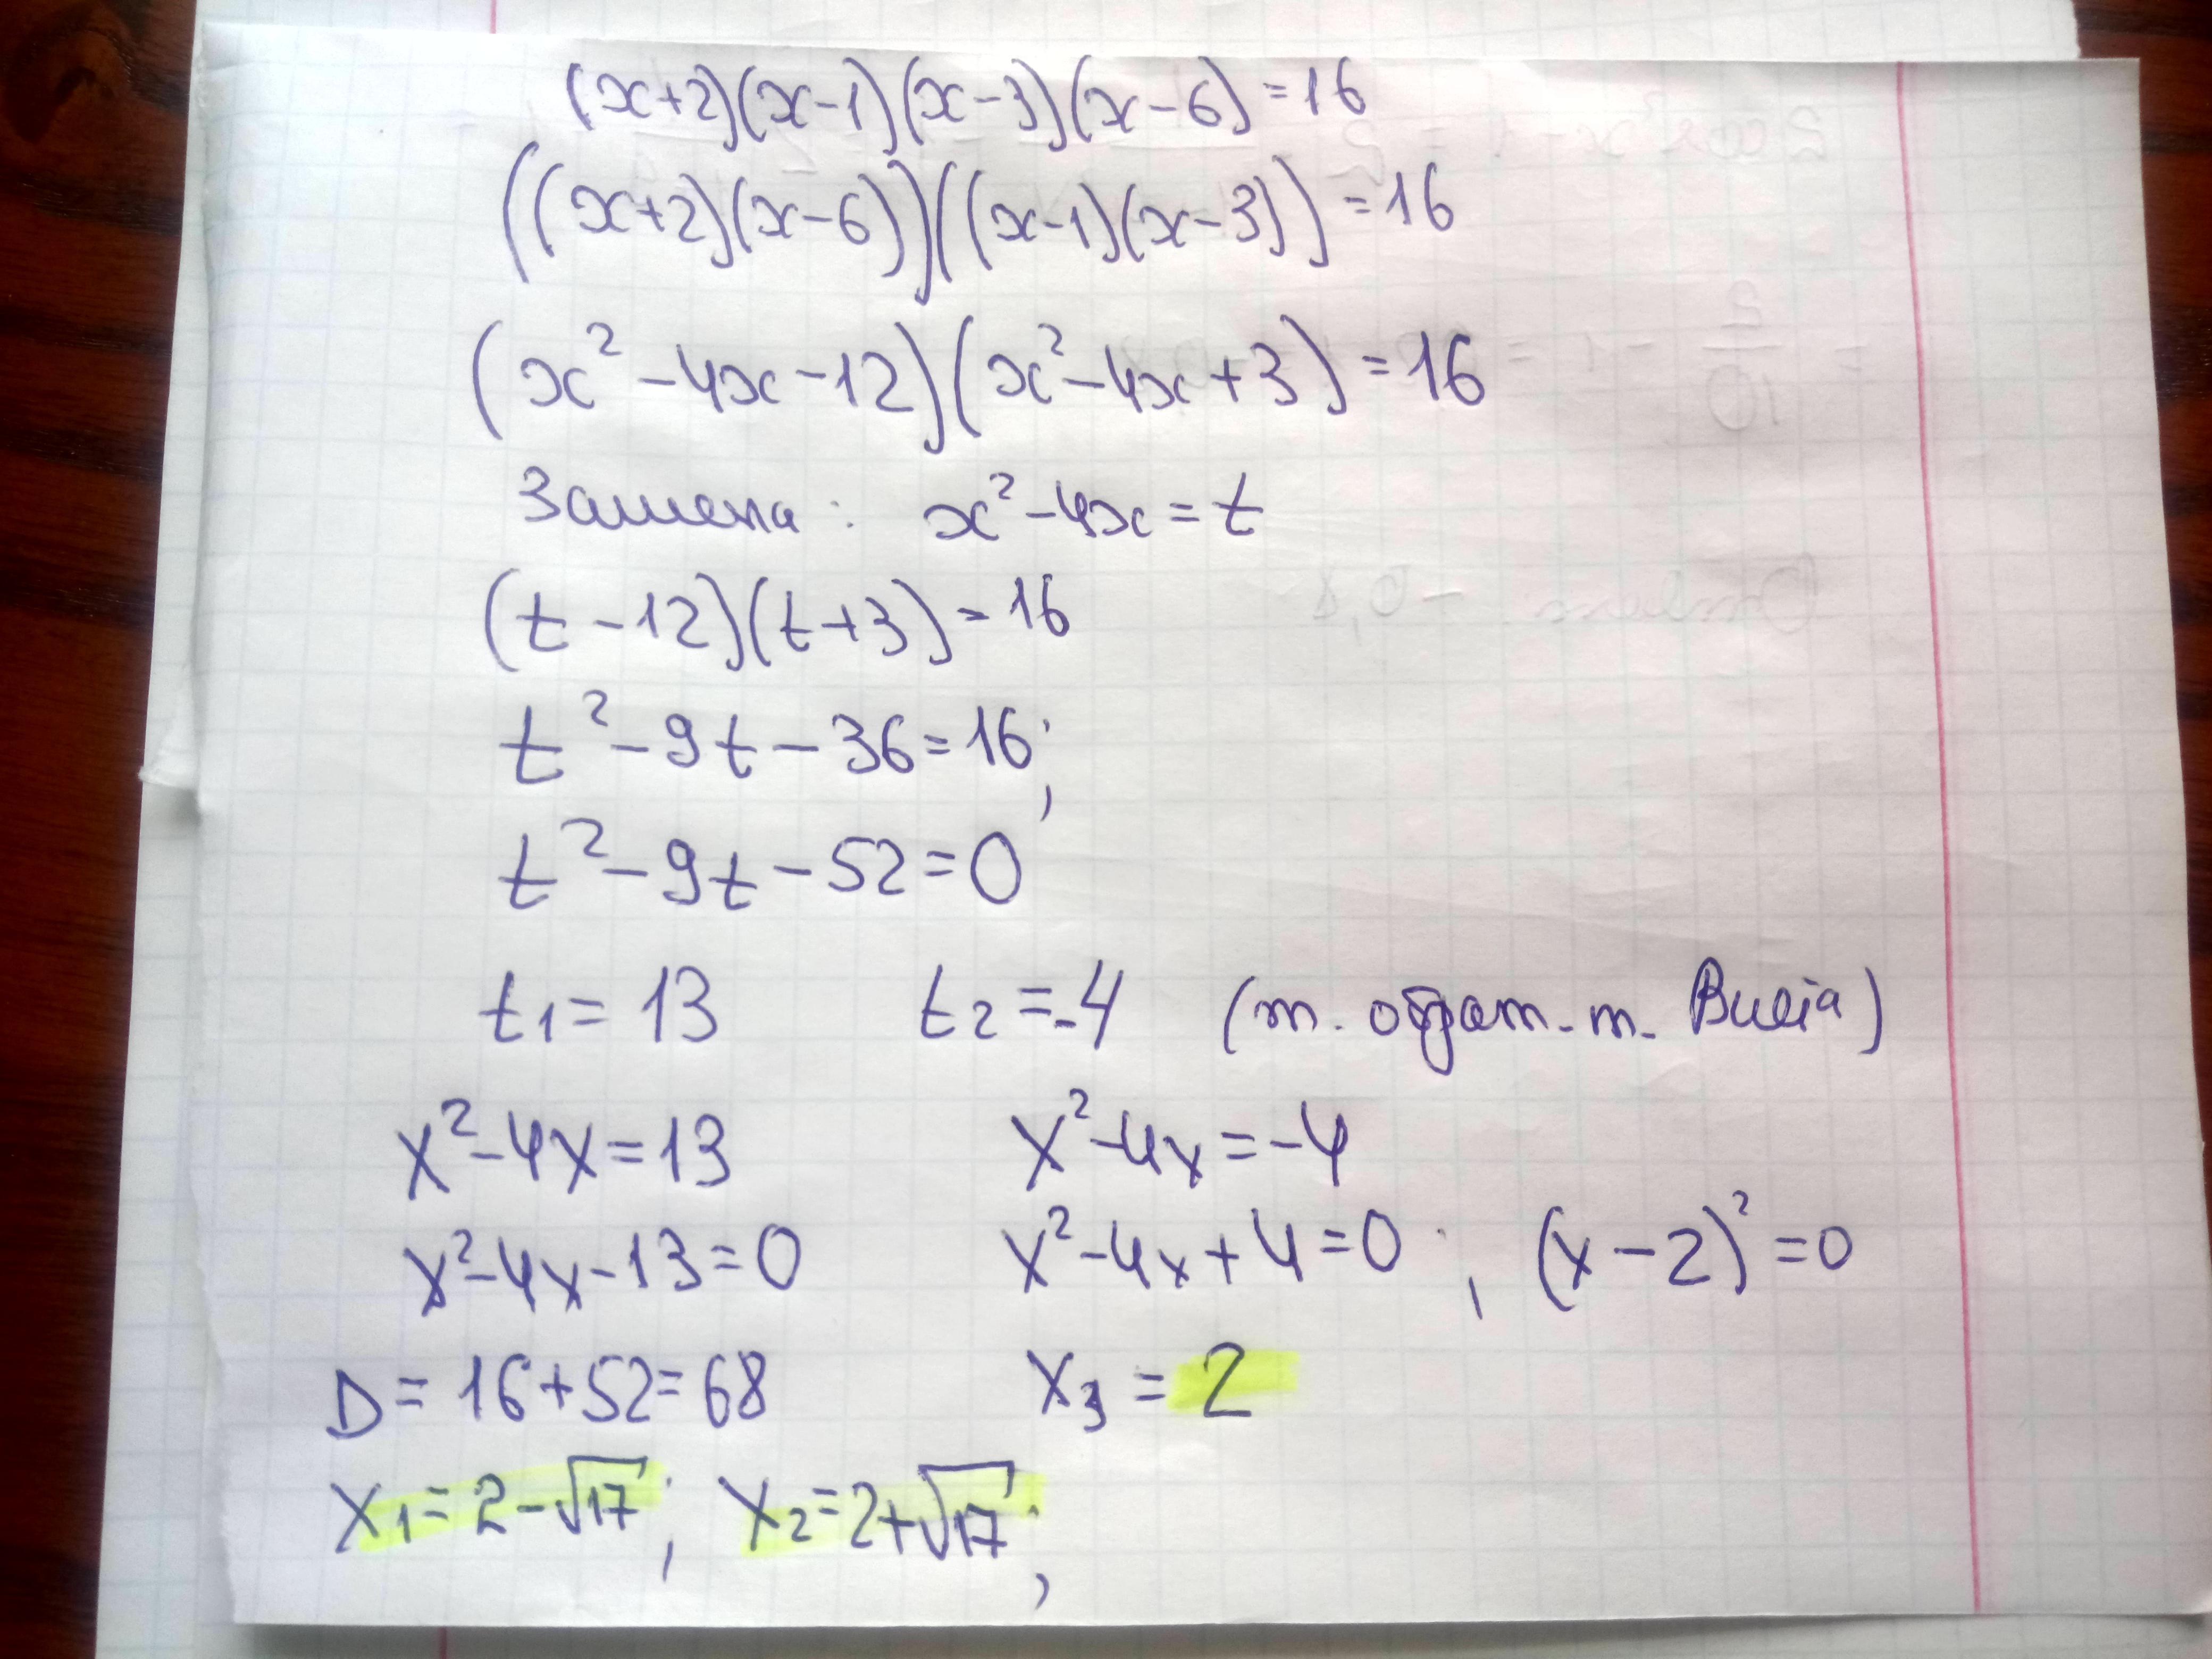 (x+2)(x-1)(x-3)(x-6)=16
((x+2)(x-6))((x-1)(x-3))=16
(x²-4x-12)(x²-4x+3)=16
Замена: x²-4x=t
(t-12)(t+3)=16
t²-9t-36=16;
t²-9t-52=0
t₁=13 t₂=-4 (т. обрат. т. Виета)
x²-4x=13 x²-4x=-4
x²-4x-13=0 x²-4x+4=0; (x-2)²=0
D=16+52=68 x₃=2
x₁=2-√17; x₂=2+√17;